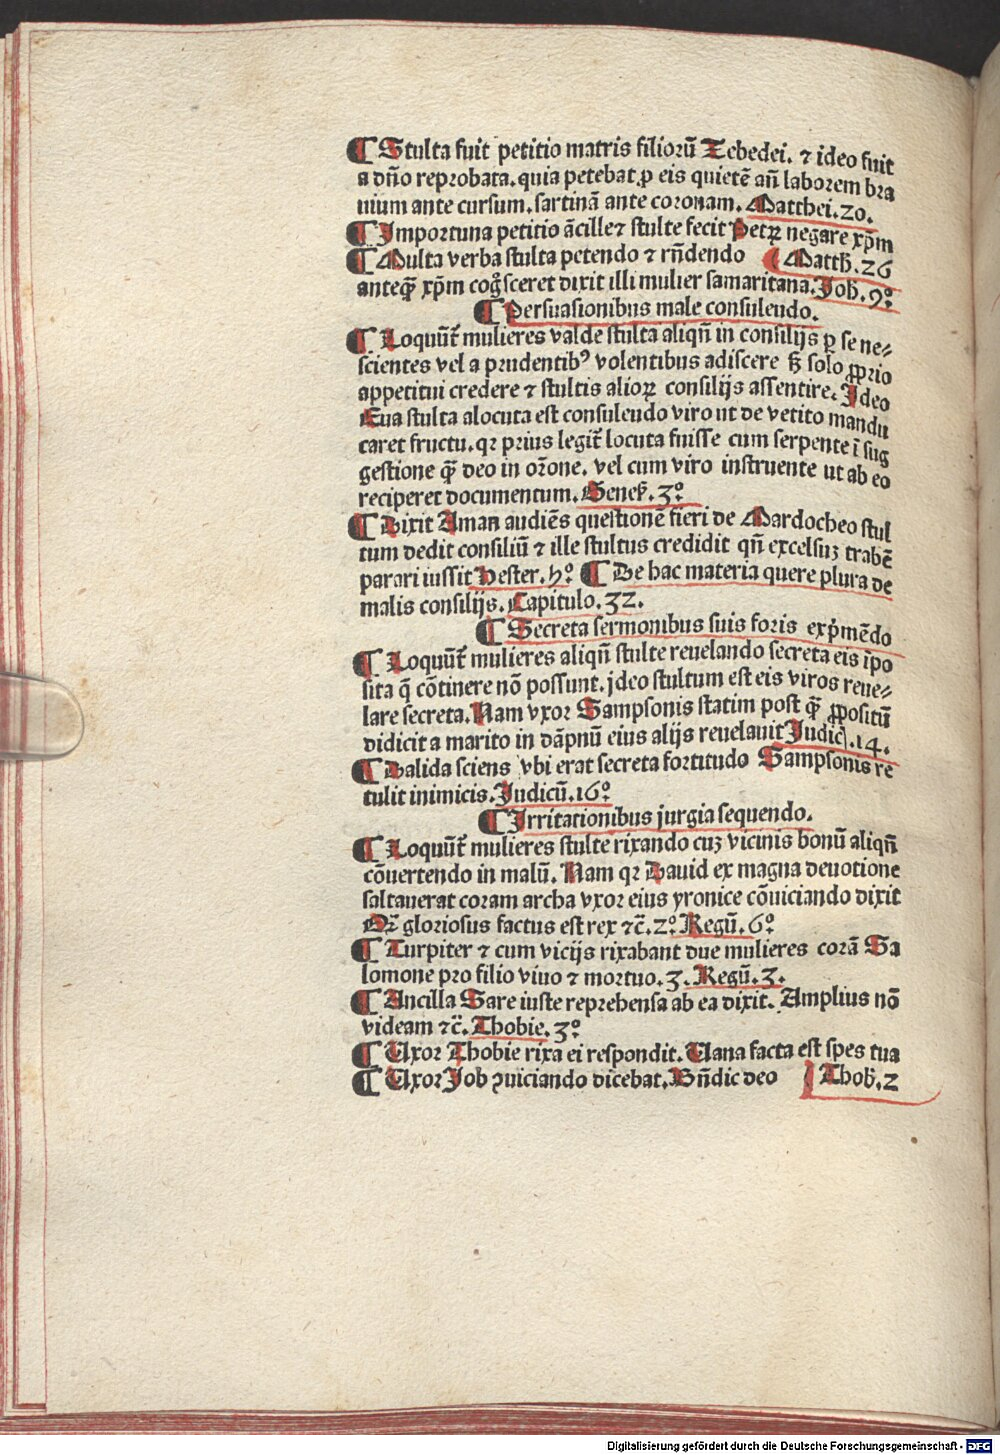 ¶ Stulta fuit petitio matris filiorū Zebedei. ⁊ ideo fuit
a dn̄o reprobata. quia petebat ꝓ eis quietē an̄ laborem bra
uium ante cursum. sartinā ante coronam. Matthei. 20.
¶ Importuna petitio ācille ⁊ stulte fecit Petrꝫ negare xp̄m
¶ Multa verba stulta petendo ⁊ rn̄dendo ( Matth. 26
anteq̄ xp̄m coḡsceret dixit illi mulier samaritana. Joh. 9°
¶ Persuasionibus male consulendo.
¶ Loquūt̄ mulieres valde stulta aliqn̄ in consilijs ꝑ se ne⸗
scientes vel a prudentibꝰ volentibus adiscere sꝫ solo ꝓprio
appetitui credere ⁊ stultis alioꝝ consilijs assentire. Ideo
Eua stulta alocuta est consulendo viro ut de vetito mandu
caret fructu. qꝛ prius legit̄ locuta fuisse cum serpente ī sug
gestione q̄ deo in orōne. vel cum viro instruente ut ab eo
reciperet documentum. Genes̄. 3°
¶ Dixit Aman audiēs questionē fieri de Mardocheo stul
tum dedit consiliū ⁊ ille stultus credidit qn̄ excelsuꝫ trabē
parari iussit Hester. h° ¶ De hac materia quere plura de
malis consilijs. Capitulo. 32.
¶ Secreta sermonibus suis foris exp̄mēdo
¶ Loquūt̄ mulieres aliqn̄ stulte reuelando secreta eis īpo
sita q̄ cōtinere nō possunt. jdeo stultum est eis viros reue⸗
lare secreta. Nam vxor Sampsonis statim post q̄ ꝓpositū
didicit a marito in dāpnū eius alijs reuelauit Judic̄. 14.
¶ Dalida sciens vbi erat secreta fortitudo Sampsonis re
tulit inimicis. Judicū. 16°
¶ Irritationibus jurgia sequendo.
¶ Loquūt̄ mulieres stulte rixando cuꝫ vicinis bonū aliqn̄
cōuertendo in malū. Nam qꝛ Dauid ex magna deuotione
saltauerat coram archa vxor eius yronice cōuiciando dixit
Qꝛ gloriosus factus est rex ⁊c̄. 2° Regū. 6°
¶ Turpiter ⁊ cum vicijs rixabant due mulieres corā Sa
lomone pro filio viuo ⁊ mortuo. 3. Regū. 3.
¶ Ancilla Sare iuste reprehensa ab ea dixit. Amplius nō
videam ⁊c̄. Thobie. 3°
¶ Uxor Thobie rixa ei respondit. Uana facta est spes tua
¶ Uxor Job ꝯuiciando dicebat. Bn̄dic deo ( Thob. 2
Digitalisierung gefördert durch die Deutsche Forschungsgemeinschaft - DFG